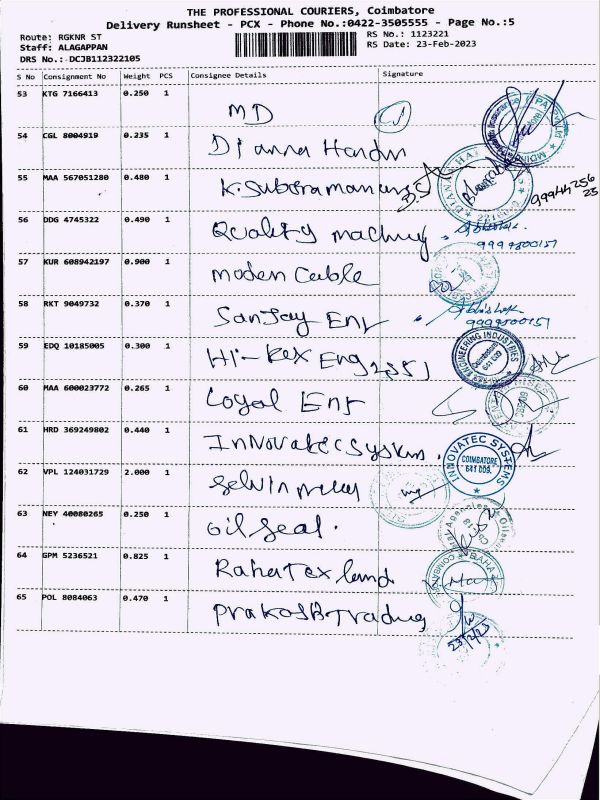 THE PROFESSIONAL COURIERS, Coimbatore
Delivery Runsheet - PCX - Phone No.:0422-3505555 - Page No.:5
Route: RGKNR ST
RS No.: 1123221
Staff: ALAGAPPAN
RS Date: 23-Feb-2023
DRS No.: DCJB112322105
S No Consignment No Weight PCS Consignee Details Signature
53 KTG 7166413 0.250 1
MD
54 CGL 8004919 0.235 1
Dianna Handm
55 MAA 567051280 0.480 1
K. Subaramani
99944256
23
56 DDG 4745322 0.490 1
Quality
9999800157
57 KUR 608942197 0.900 1
Moden Cable
58 RKT 9049732 0.370 1
Sanjay Enr
Abhishek
9999800157
59 EDQ 10185005 0.300 1
Hi-Rex Eng
ENGINEERING INDUSTRIES
COIMBATORE
641 009
60 MAA 600023772 0.265 1
Loyal Enr
61 HRD 369249802 0.440 1
Innovatec System.
INNOVATEC SYSTEMS
COIMBATORE
641 009.
62 VPL 124031729 2.000 1
Selvin
63 NEY 40080265 0.250 1
Oil Seal.
64 GPM 5236521 0.825 1
Raha Tex land
65 POL 8084063 0.470 1
Prakash Trading
23/2/23